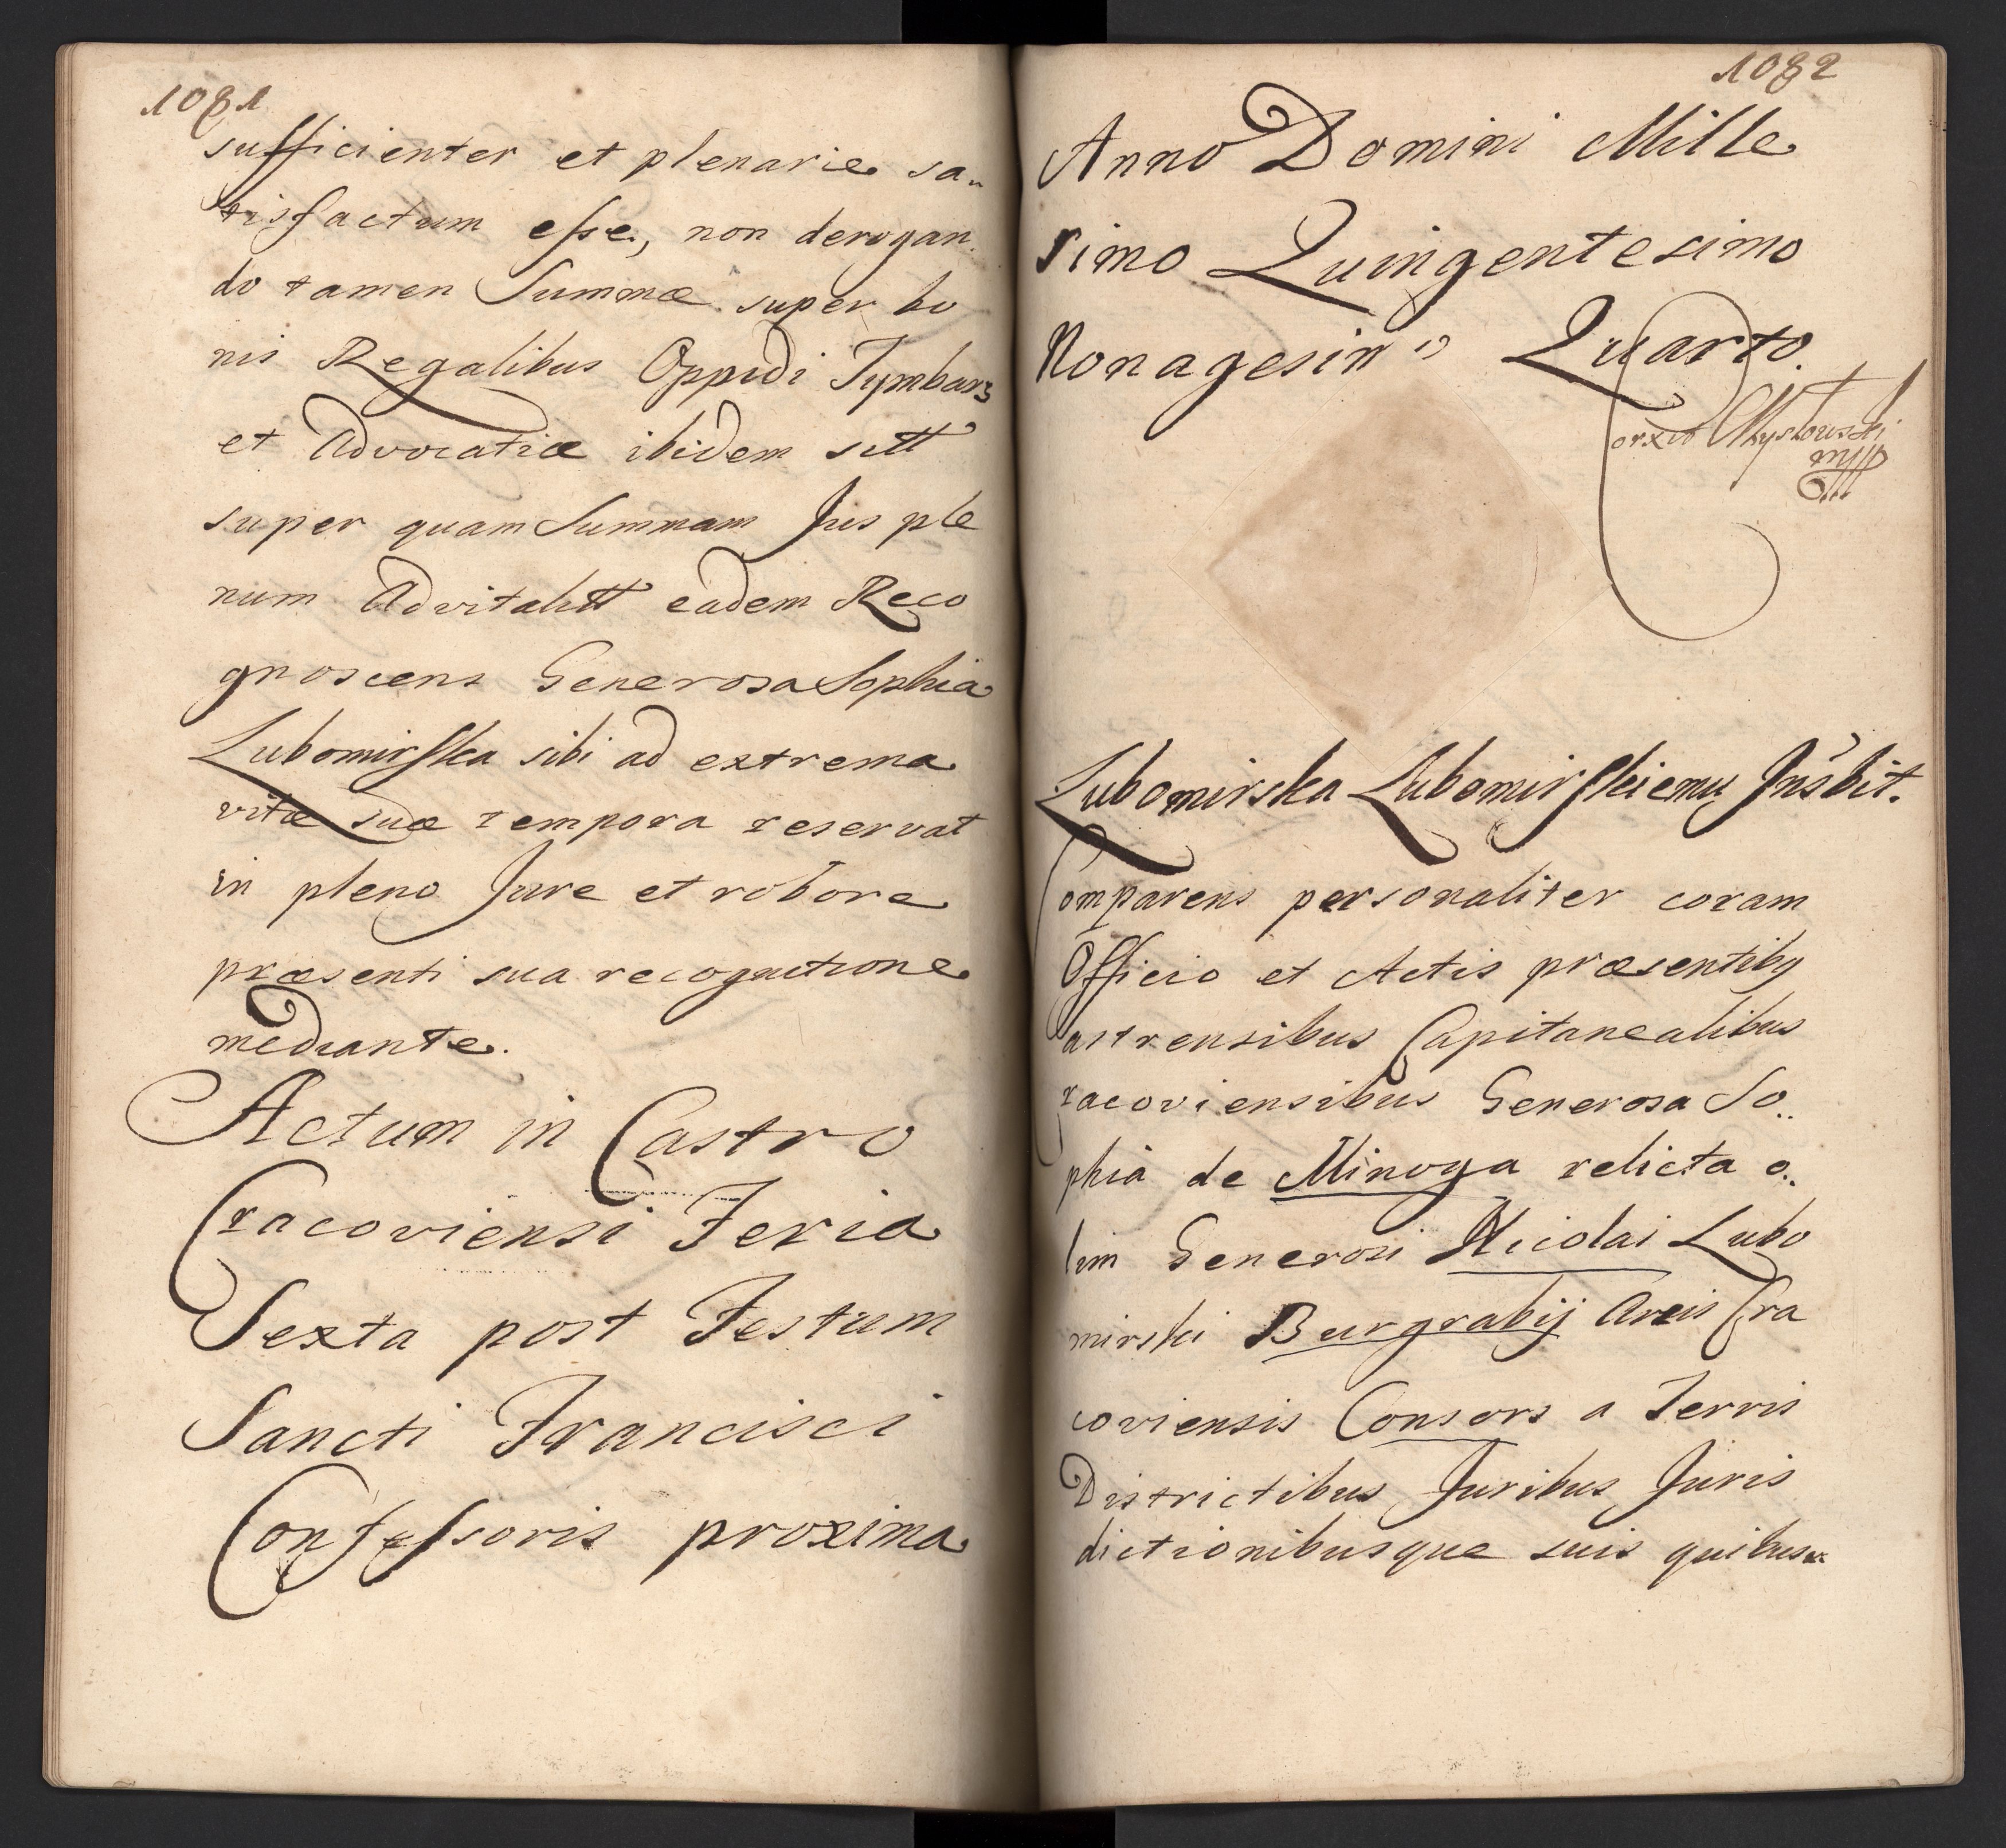 1081
sufficienter et plenarie sa„
tisfactum esse, non derogan
do tamen Summæ super bo
nis Regalibus Oppidi Tymbarz
et Advocatiæ ibidem sitt
super quam Summam Jus ple
num Advitalitt eadem Reco
gnoscens Generosa Sophia
Lubomirska sibi ad extrema
vitæ suæ tempora reservat
in pleno Jure et robore
præsenti sua recognitione
mediante.
Actum in Castro
Cracoviensi Feria
Sexta post Festum
Sancti Francisci
Confessoris proxima
1082
Anno Domini Mille
simo Quingentesimo
Nonagesim" Quarto.
Lubomirska Lubomirskiemu Inśbit.
Comparens personaliter coram
Officio et Actis præsentiby
Castrensibus Capitanealibus
Cracoviensibus Generosa So„
phia de Minoga relicta o„
lim Generosi Nicolai Lubo
mirski Burgrabij Arcis Cra
coviensis Consors a Terris
Districtibus Juribus Juris
dictionibusque suis quibus„